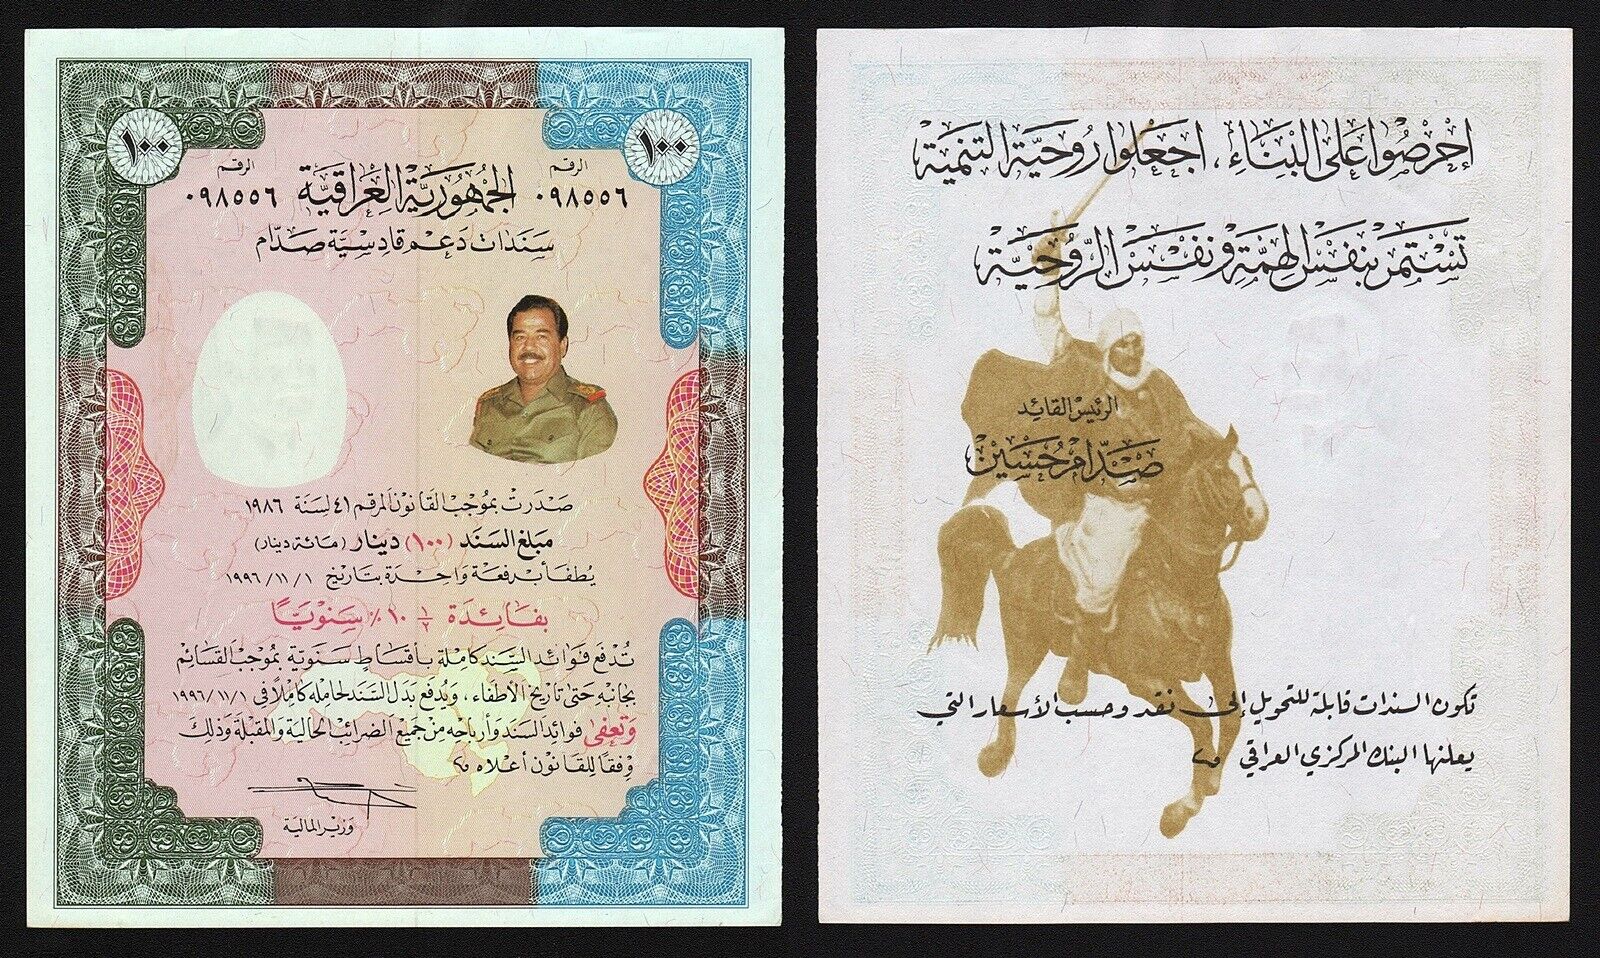 ١٠٠
١٠٠
الرقم
الرقم
٠٩٨٥٥٦ الجمهورية العراقية ٠٩٨٥٥٦
سندات دعم قادسية صدام
صدرت بموجب القانون المرقم ٤١ لسنة ١٩٨٦
مبلغ السند (١٠٠) دينار (مائة دينار)
يُطفأ بدفعة واحدة بتاريخ ١/ ١١/ ١٩٩٦
بفائدة ١/٢ ١٠٪ سنويًا
تدفع فوائد السند كاملة بأقساط سنوية بموجب القسائم
بجانبه حتى تاريخ الأطفاء، ويُدفع بدل السند لحامله كاملًا في ١/ ١١/ ١٩٩٦
وتعفى فوائد السند وأرباحه من جميع الضرائب الحالية والمقبلة وذلك
وفقًا للقانون أعلاه
وزير المالية
احرصوا على البناء، اجعلوا روحية التنمية
تستمر بنفس الهمة ونفس الروحية
الرئيس القائد
صدام حسين
تكون السندات قابلة للتحويل إلى نقد وحسب الأسعار التي
يعلنها البنك المركزي العراقي